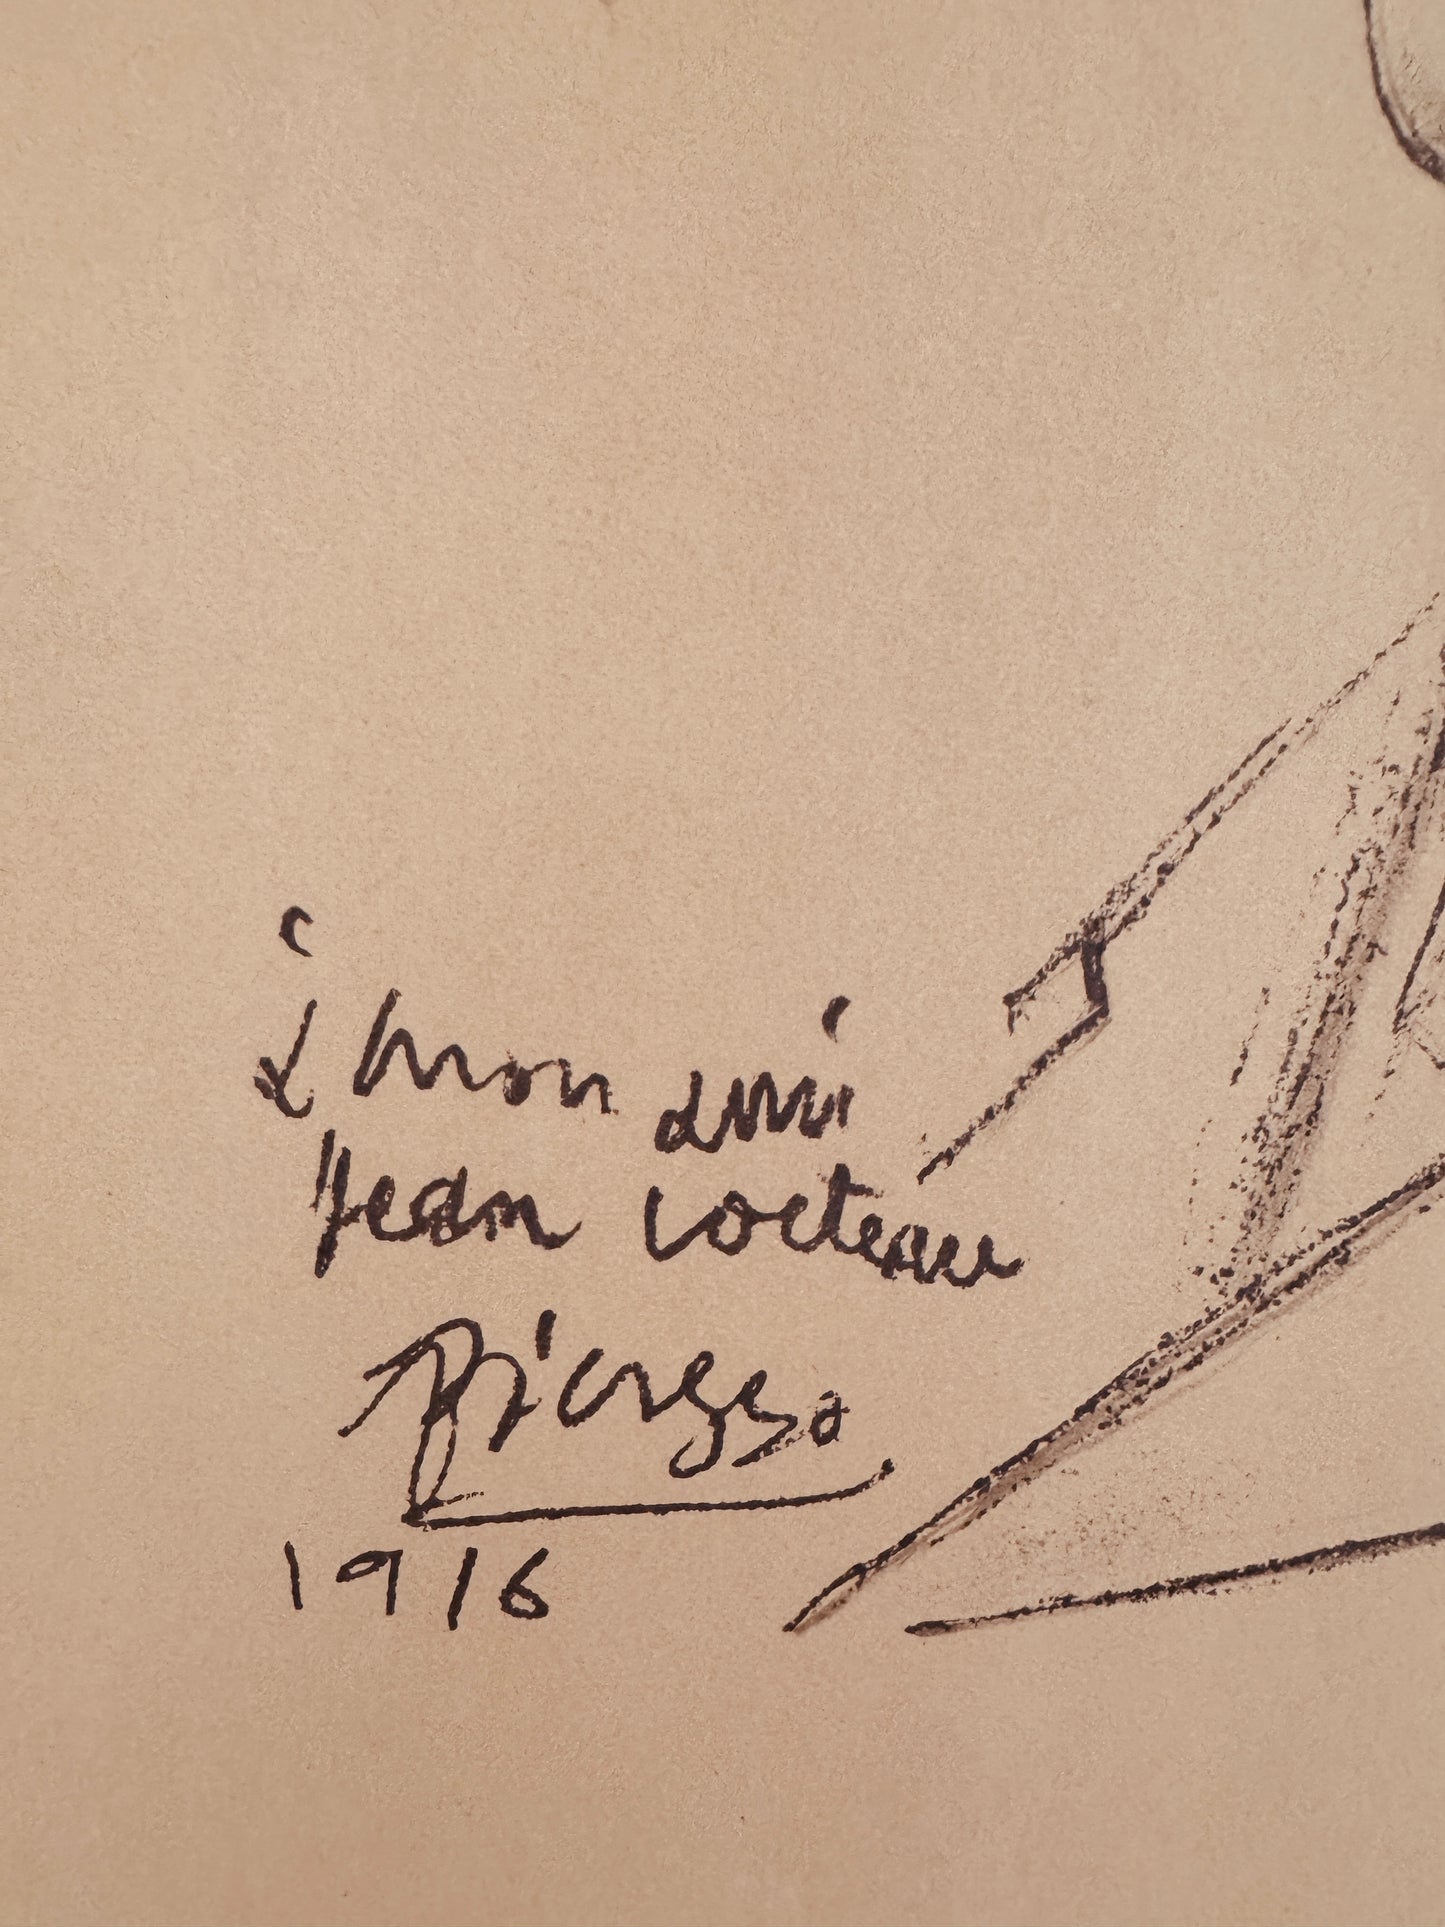 à mon ami
Jean Cocteau
Picasso
1916